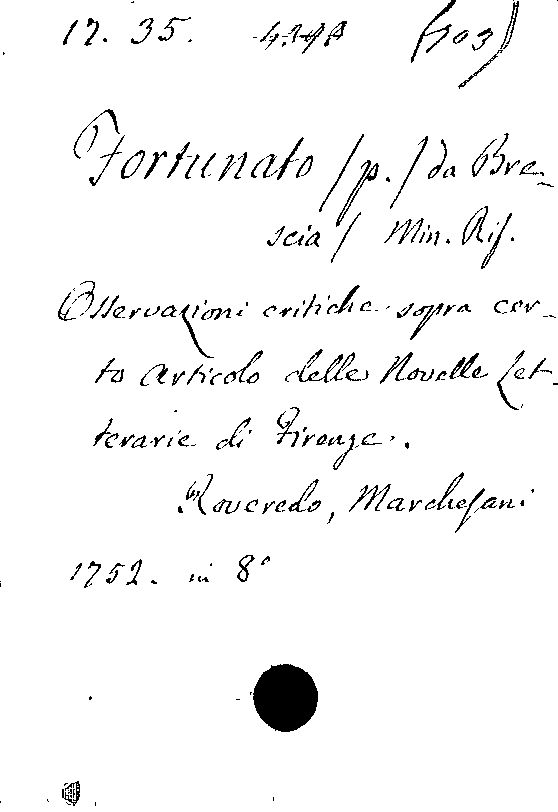 12. 35. (703)
Fortunato /p./ da Bre-
scia / Min. Rif.
Osservazioni critiche sopra cer-
to Articolo delle Novelle Let-
terarie di Firenze.
Roveredo, Marchesani
1752. in 8°